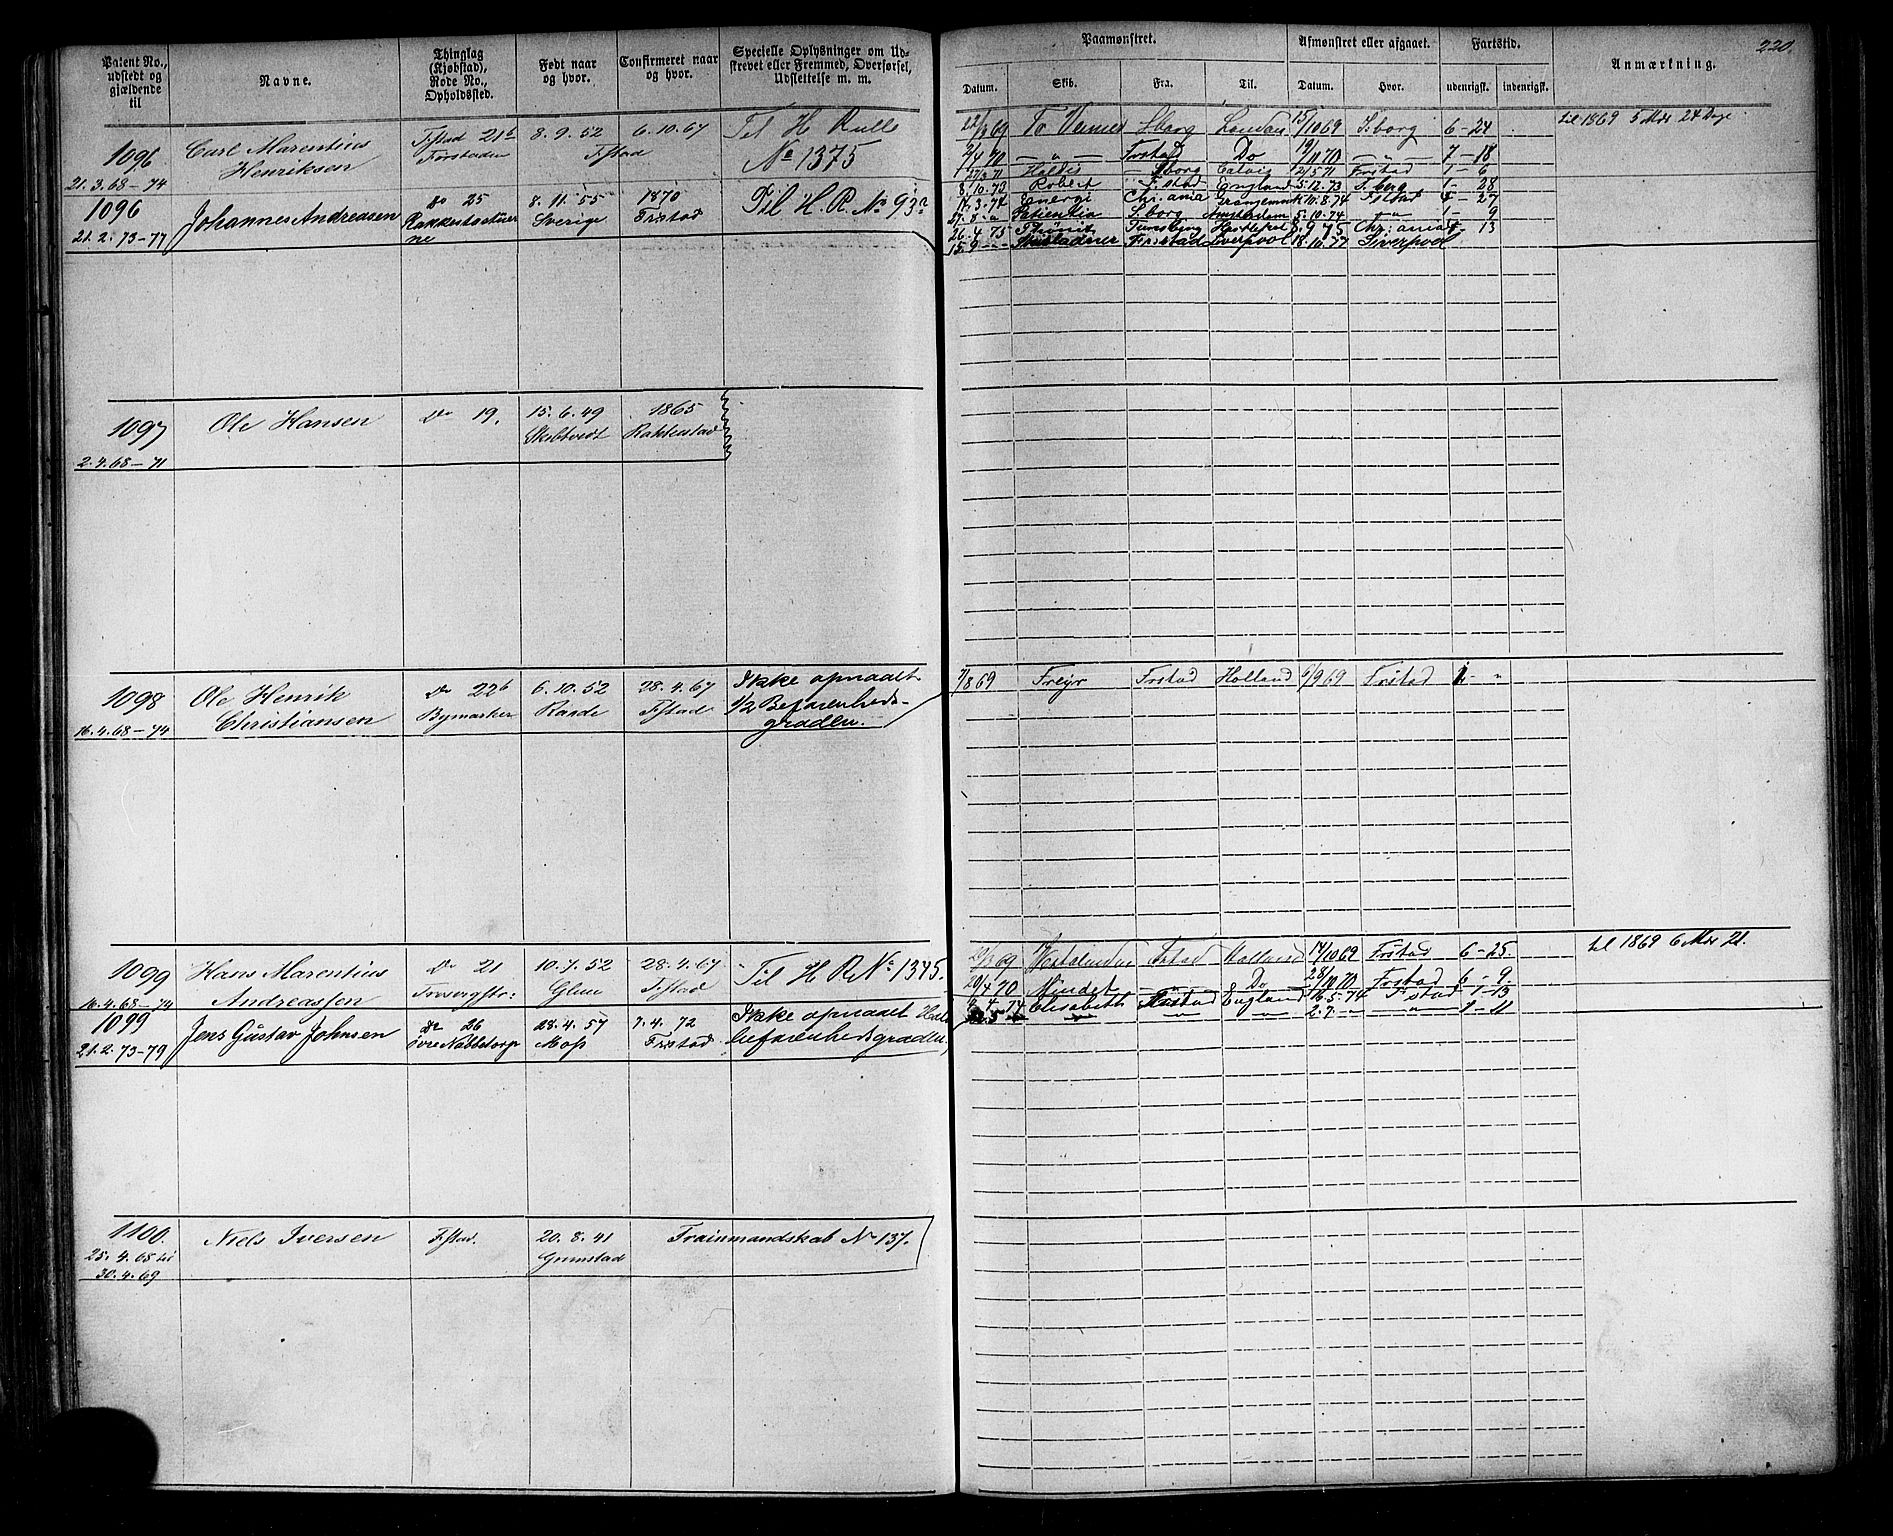 220.
Patent No., udstedt og gjældende til
Navne.
Thinglag (Kjøbstad), Rode No., Opholdssted.
Født naar og hvor.
Confirmeret naar og hvor.
Specielle Oplysninger om Udskrevet eller Fremmed, Overførsel, Udslettelse m. m.
Paamønstret.
Afmønstret eller afgaaet.
Fartstid.
Anmærkning.
Datum. Skib. Fra. Til. Datum. Hvor. udenrigsk. indenrigsk.
1096 Carl Marentius Fstad 21b 8.9.52 6.10.67 Til H Rulle
21.3.68–74 Henriksen Forstaden Fstad No 1375
1096 Johannes Andreassen Do 25 8.11.55 1870 Til H. R. No
21.2.73–77 Sverige Frstad
22/3 69 To Venner Sborg London 15/10 69 S.borg 6–24 til 1869 5 Mdr 24 Dage
2/4 70 — „ — Frstad Do 19/11 70 — „ — 7–18
27/3 71 Haldis Sborg 2/5 71 Frstad 1–6
8/10.73 Robert F.stad England 5.12.73 S.borg 1–28
17.3.74 Energi Chr.ania 10.8.74 Fstad 4–27
27.8.„ Patientia S.borg Amsterdam 5.10.74 „ 1–9
26.4.75 Tunsbjrg 8.9.75 Chr:ania 4–13
15.9 Frstad Liverpool 18.10.77 Liverpool
1097 Ole Hansen Do 19. 15.6.49 1865
2.4.68–71 Skibtvedt Rakkestad
1098 Ole Henrik Do 22b 6.10.52 28.4.67 Ikke opnaaet
16.4.68–74 Christiansen Bymarken Raade Fstad 1/2 Befarenheds-
graden.
7/8 69 Freyr Frstad Holland 6/9 69 Frstad 1– „
1099 Hans Marentius Do 21 10.7.52 28.4.67 Til H R No 1375.
16.4.68–74 Andreassen Glem Fstad
1099 Jens Gustav Johnsen Do 26 28.4.57 7.4.72 Ikke opnaaet Halv
21.2.73–79 Moss Frstad befarenhedsgraden,
69 Frstad Holland 14/10 69 Frstad 6–25. til 1869 6 Mdr 21.
20/4 70 Do 28/10 70 Frstad 6–9.
4.74 Elisabeth Frstad England 16.5.74 Fstad 1–13
„ „ „ 2.7. „ „ 1–11
1100. Niels Iversen Fstad. 20.8.41 Trainmandskab No 137.
25.4.68 til Grimstad
30.4.69